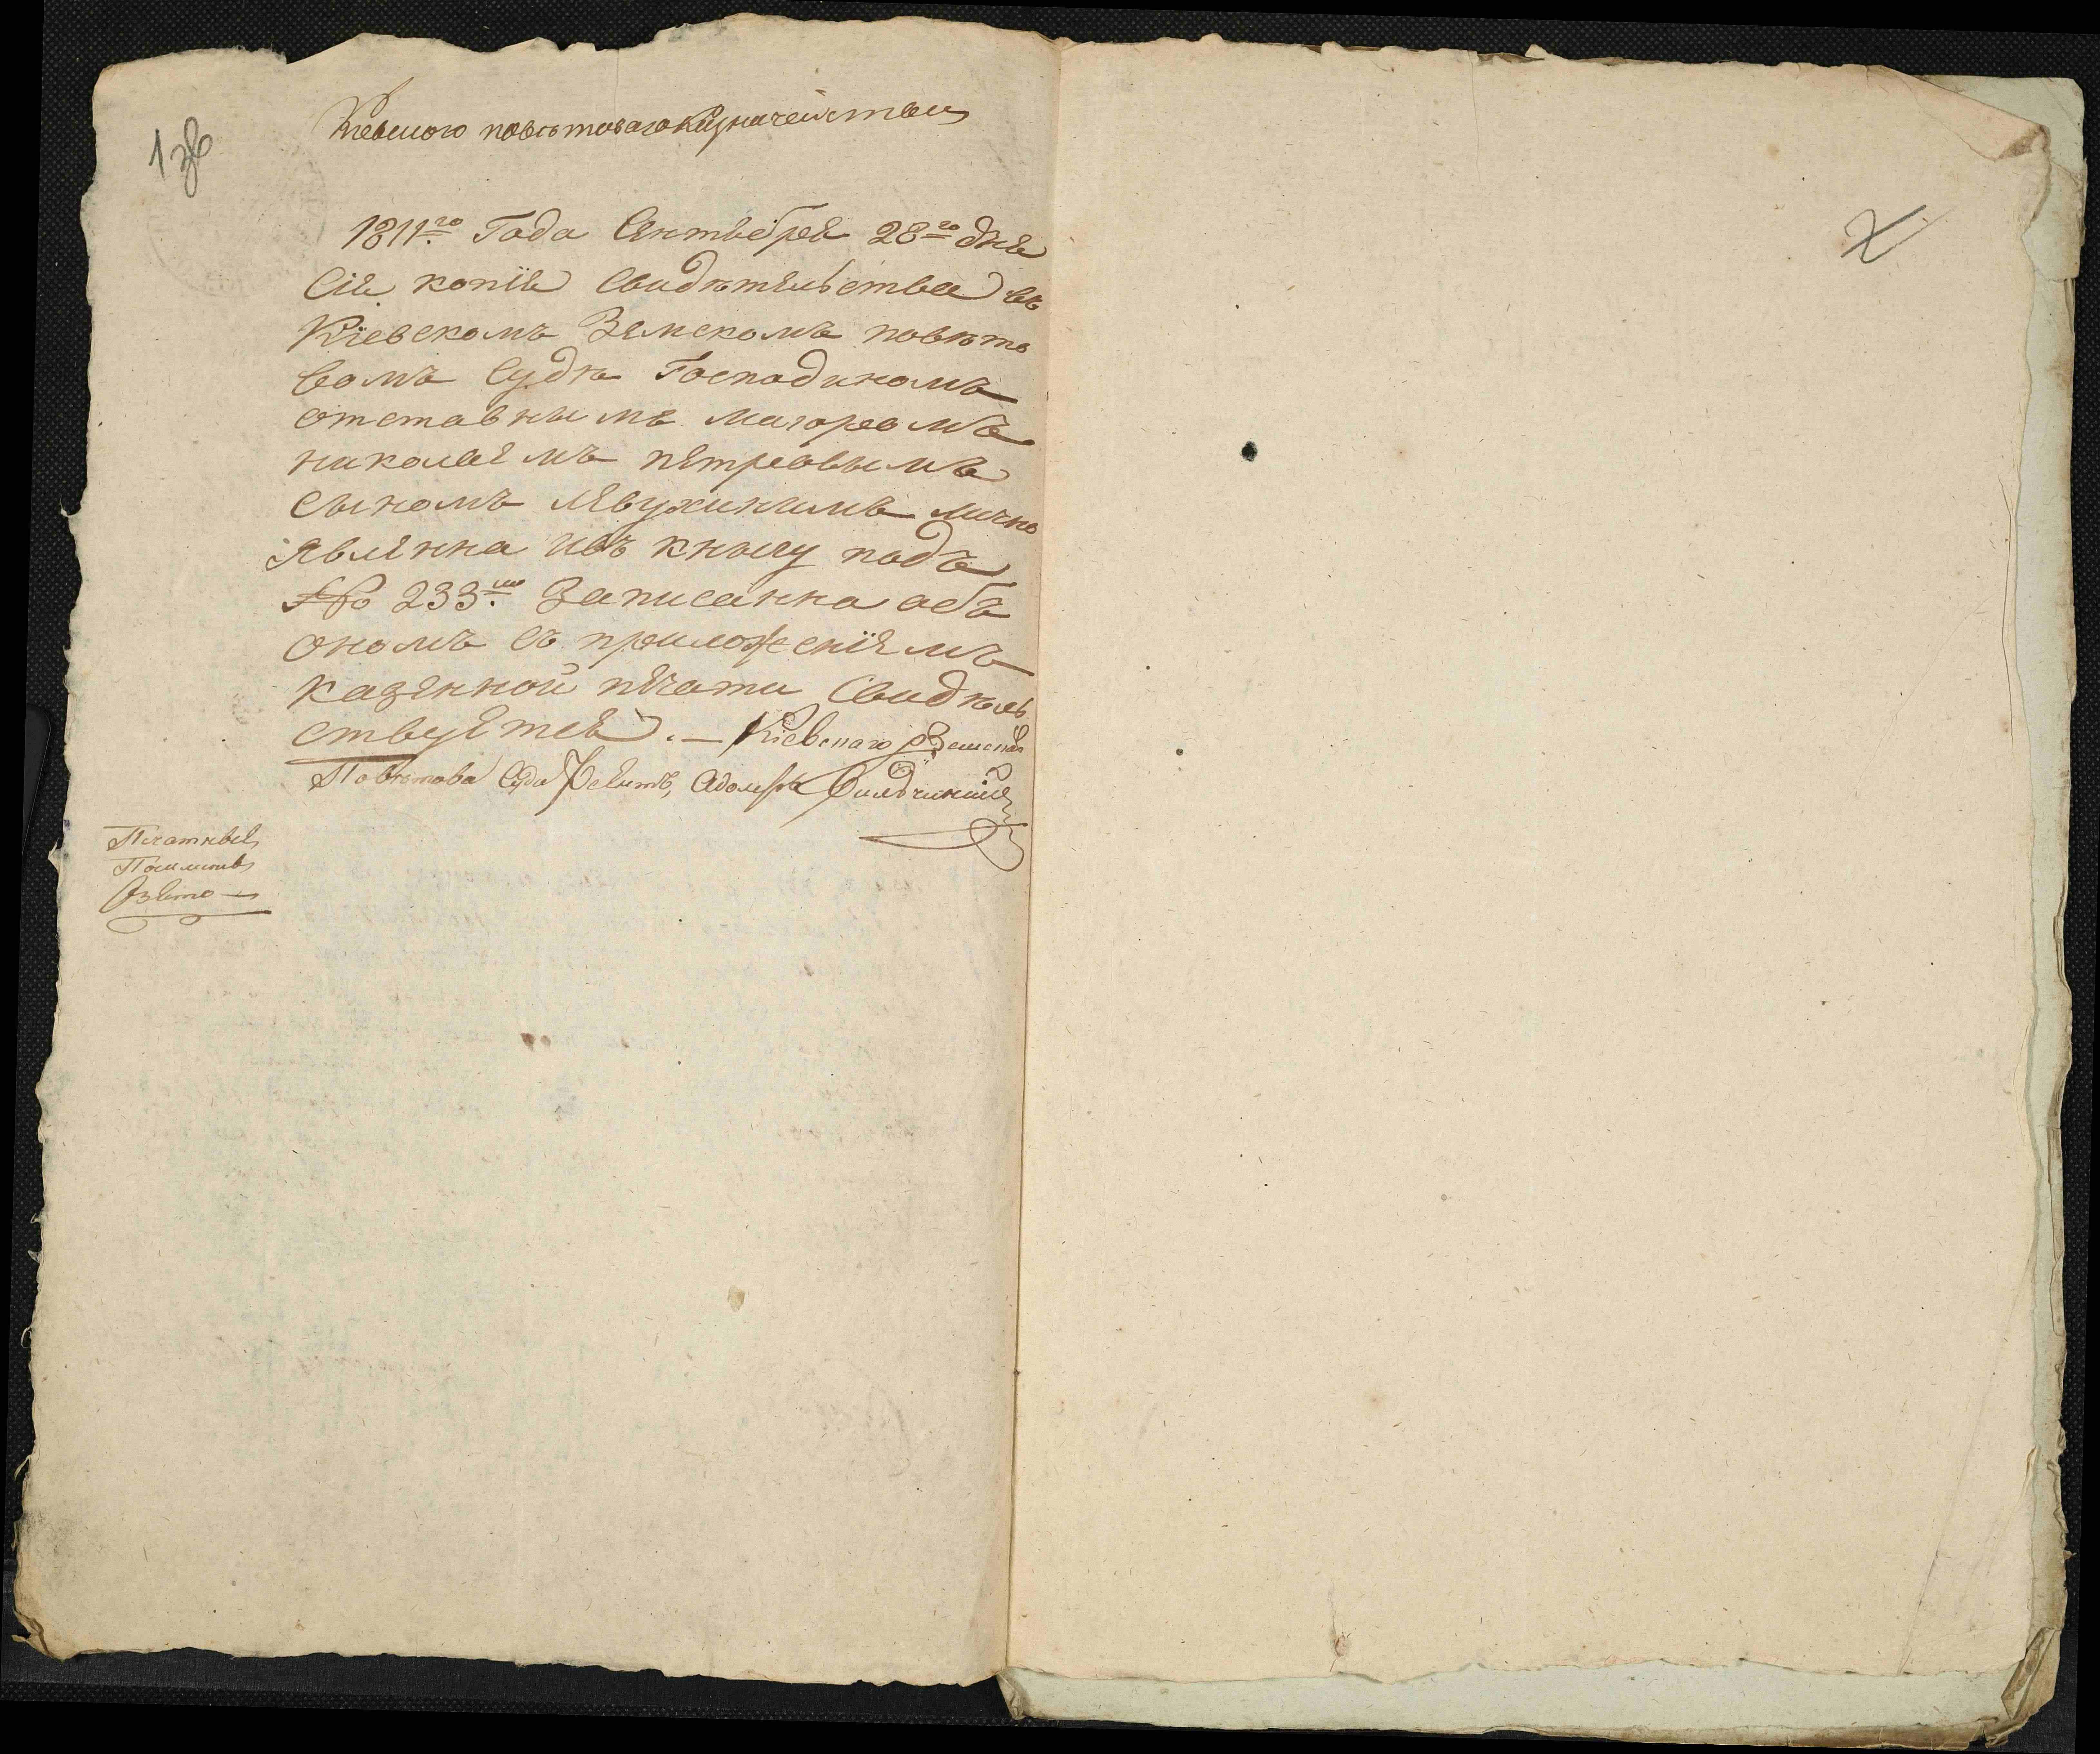 1 зв
Киевского повѣтоваго Казначейства
1811го Года Октября 28го дня
Сія копія Свидѣтельства въ
Кіевскомъ Земскомъ повѣто
вомъ Судѣ Господиномъ
отставнымъ маіоромъ
николаемъ петровымъ
сыномъ лично
явленна и въ книгу подъ
No 233 Записанна объ
ономъ съ приложеніемъ
казенной печати Свидѣтель
ствуется. — Кіевскаго Земскаго
Повѣтова Суда Регентъ, Адольфъ
Печатные
Пошлины
Взято —